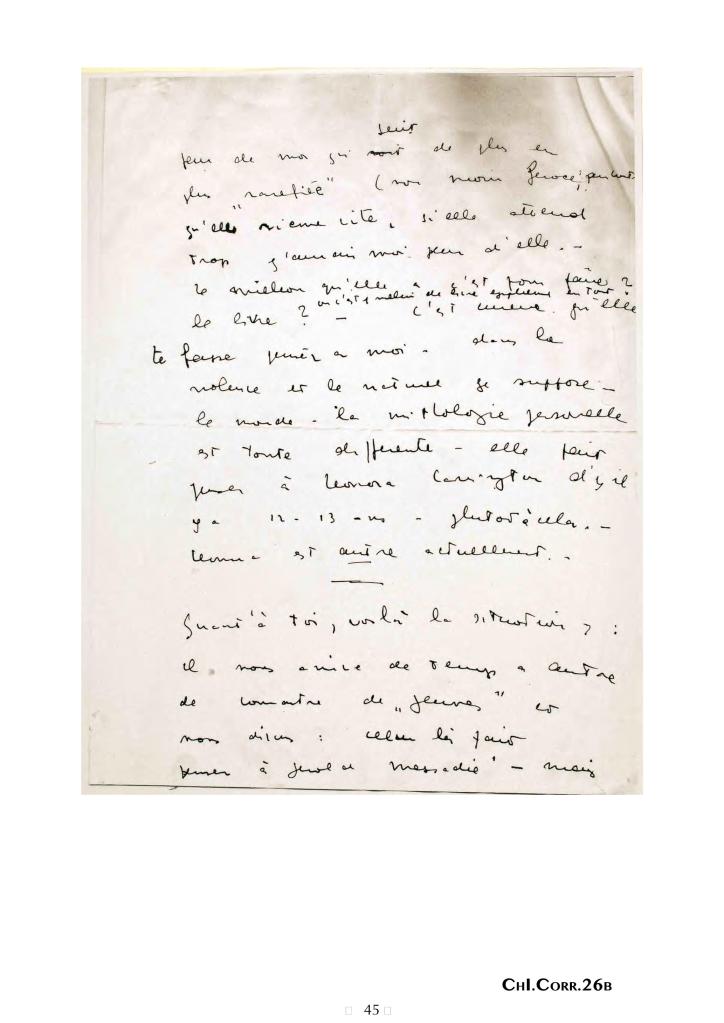 suis
peur de moi qui soit de plus en
plus "rarefiée" (non moins feroce,
qu'elle vienne vite, si elle attend
trop j'aurais moi peur d'elle. -
le million qu'elle a c'est pour faire ?
ou c'est
le livre ? - c'est même qu'elle
te fasse penser a moi - dans la
violence et le naturel je suppose -
le monde - la mithologie personelle
est toute differente - elle fait
penser à Leonora Carrington d'il
y a 12 - 13 ans - plutot à cela. -
Leonora est autre actuellement. -
Quant'à toi, voilà la situation :
il nous arrive de temps a autre
de connaitre de „jeunes" et
nous disons : celui là fait
penser à Gerald Messadié - mais
CHI.CORR.26B
45